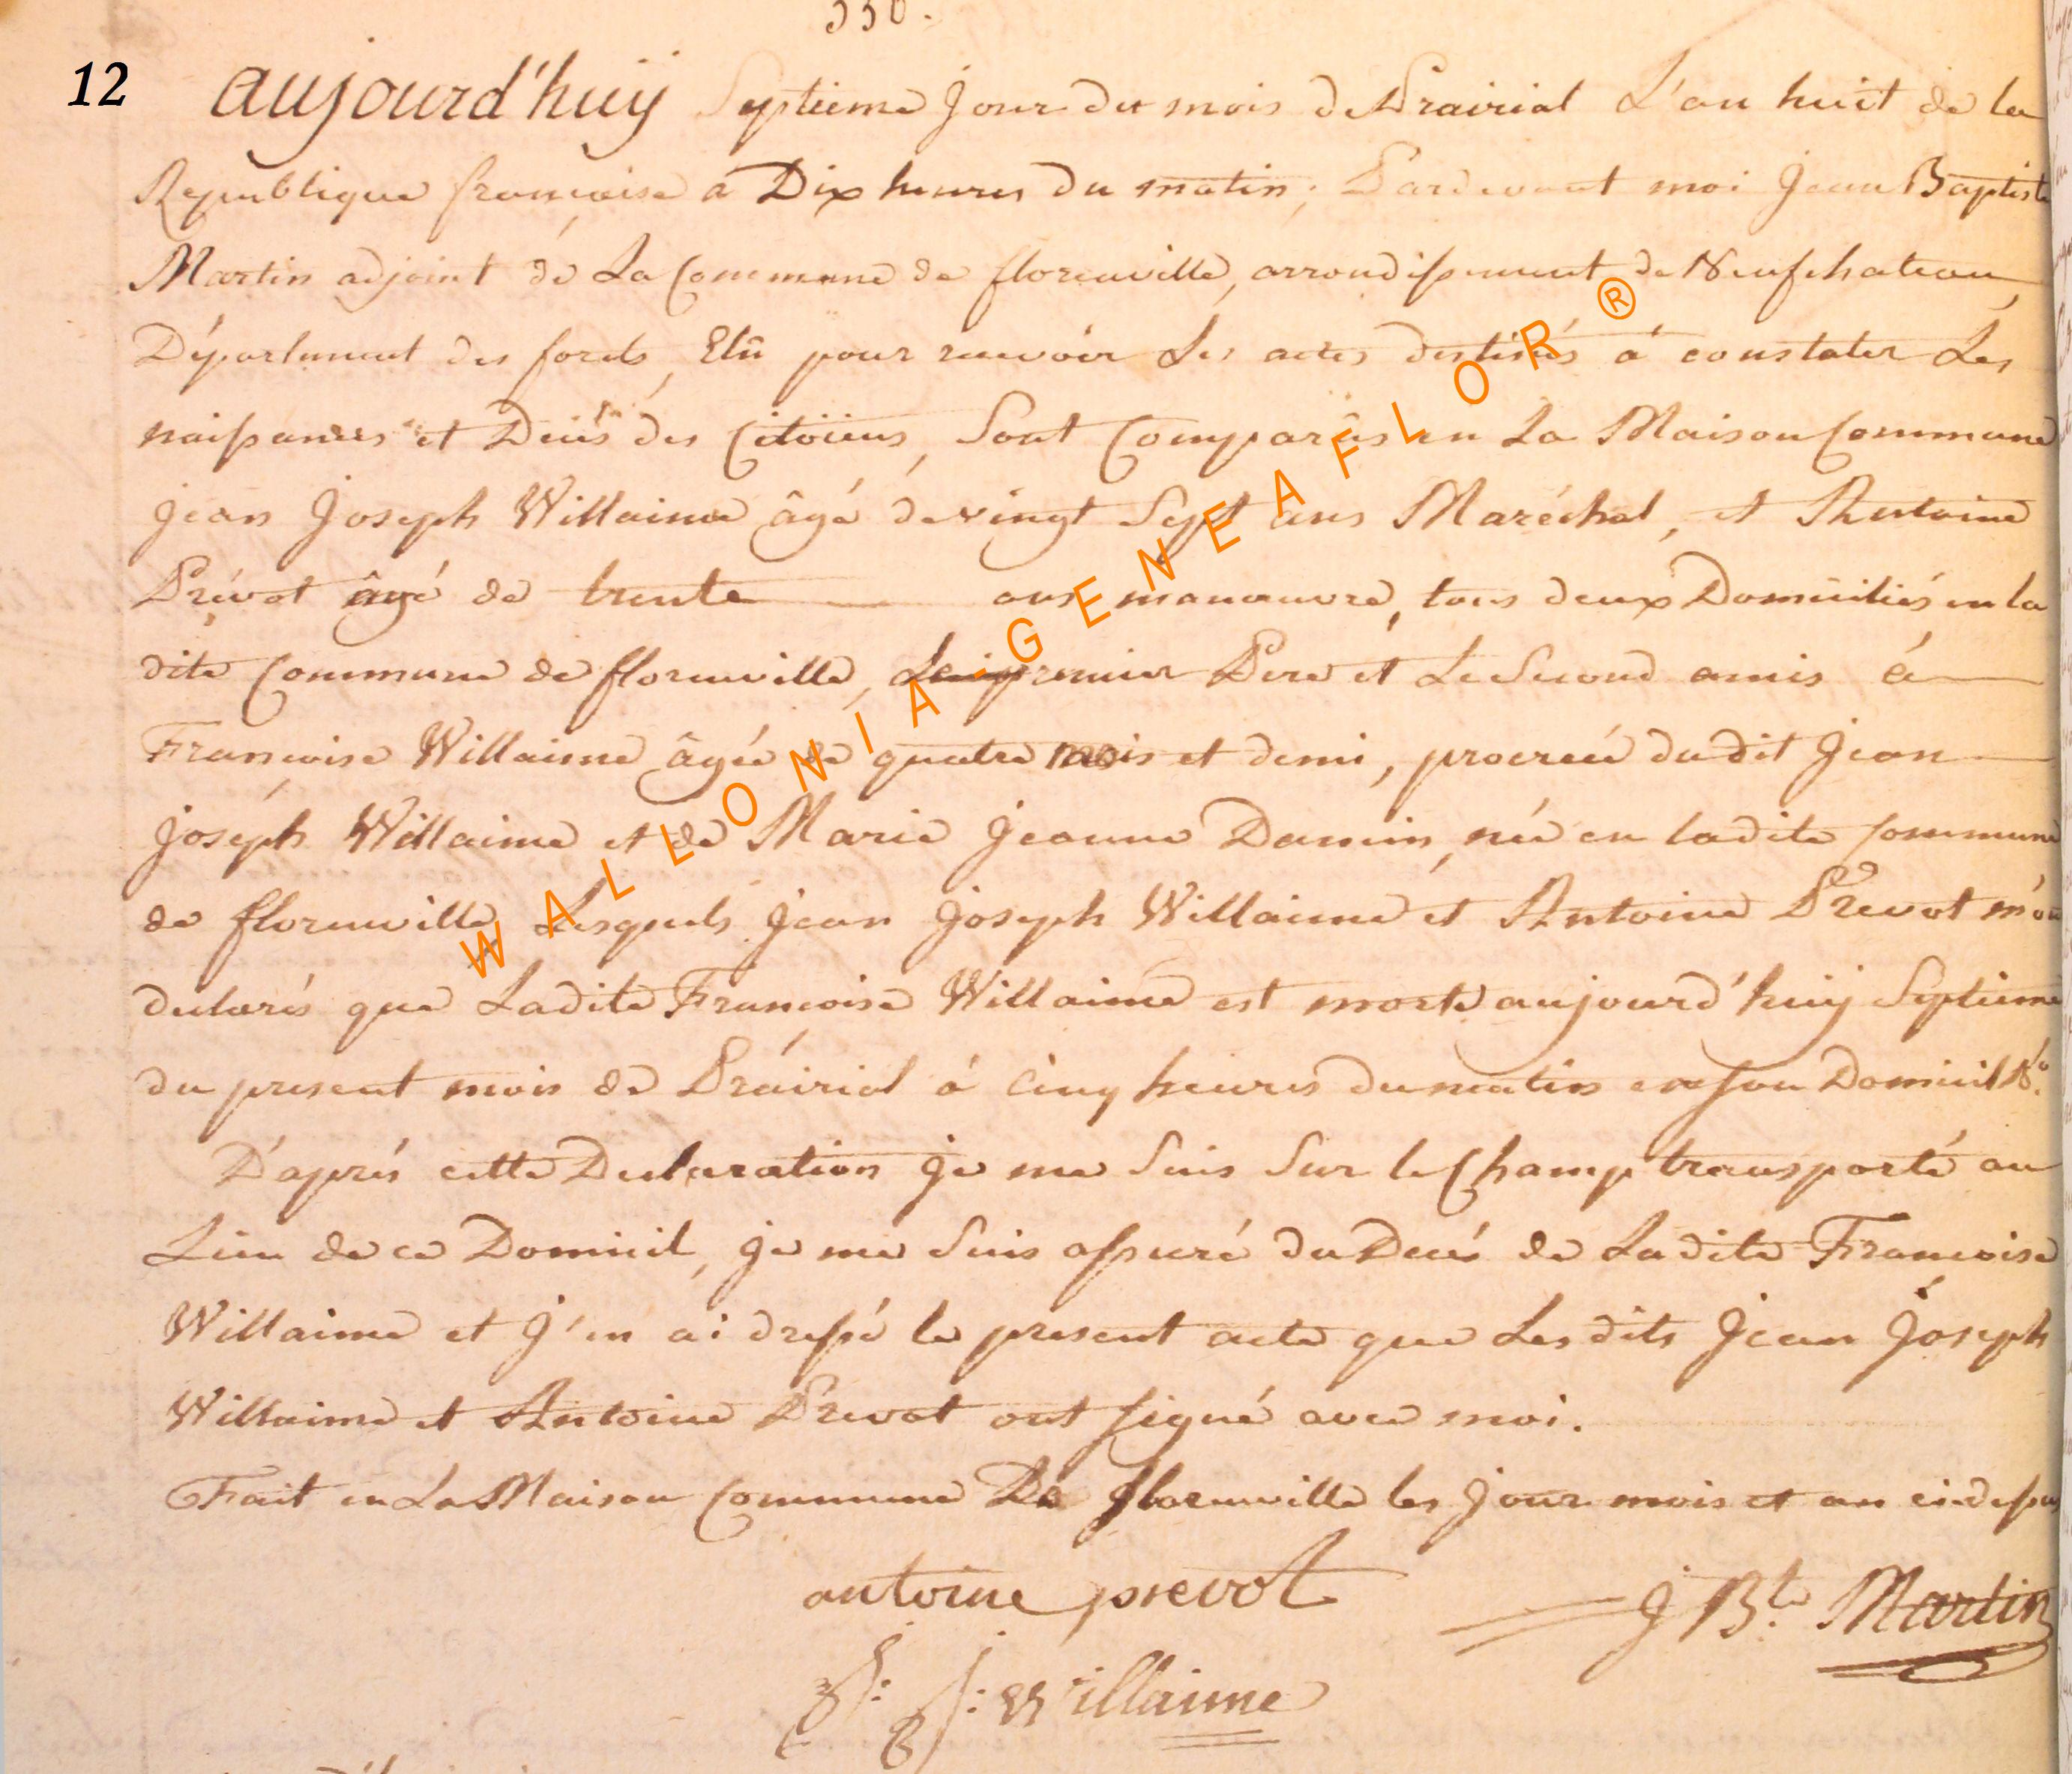 12
aujourd'huÿ Septieme Jour du mois de Prairial L'an huit de la
Republique françoise a Dix heures du matin, Pardevant moi Jean Baptiste
Martin adjoint de La Commune de florenville, arrondissement de Neufchateau,
Département des forets, Elû pour recevoir Les actes destinés á constater Les
naissances et Decés des Citöiens, Sont Comparûs en La Maison Commune
Jean Joseph Willaime âgé de vingt Sept ans Maréchal, et Antoine
Prévot âgé de trente ans manœuvre, tous deux Domiciliés en la
dite Commune de florenville, Le premier Pere et Le Second amis á
Françoise Willaime âgée de quatre mois et demi, procreée dudit Jean
Joseph Willaime et de Marie Jeanne Damin, née en ladite Commune
de florenville, Lesquels Jean Joseph Willaime et Antoine Prevot m'on
declarés que Ladite Francoise Willaime est morte aujourd'huÿ Septieme
du present mois de Prairial á Cinq heures du matin en son Domicil N°.
D'aprés cette Declaration je me Suis Sur le Champ transporté au
Lieu de ce Domicil, je me Suis assuré du Decés de Ladite Francoise
Willaime et j'en ai dressé le present acte que Lesdits Jean Joseph
Willaime et Antoine Prevot ont signé avec moi.
Fait en La Maison Commune De florenville les Jour mois et an cidessus
antoine prevot
J Bte Martin
J: J: Willaime
WALLONIA-GENEAFLOR®